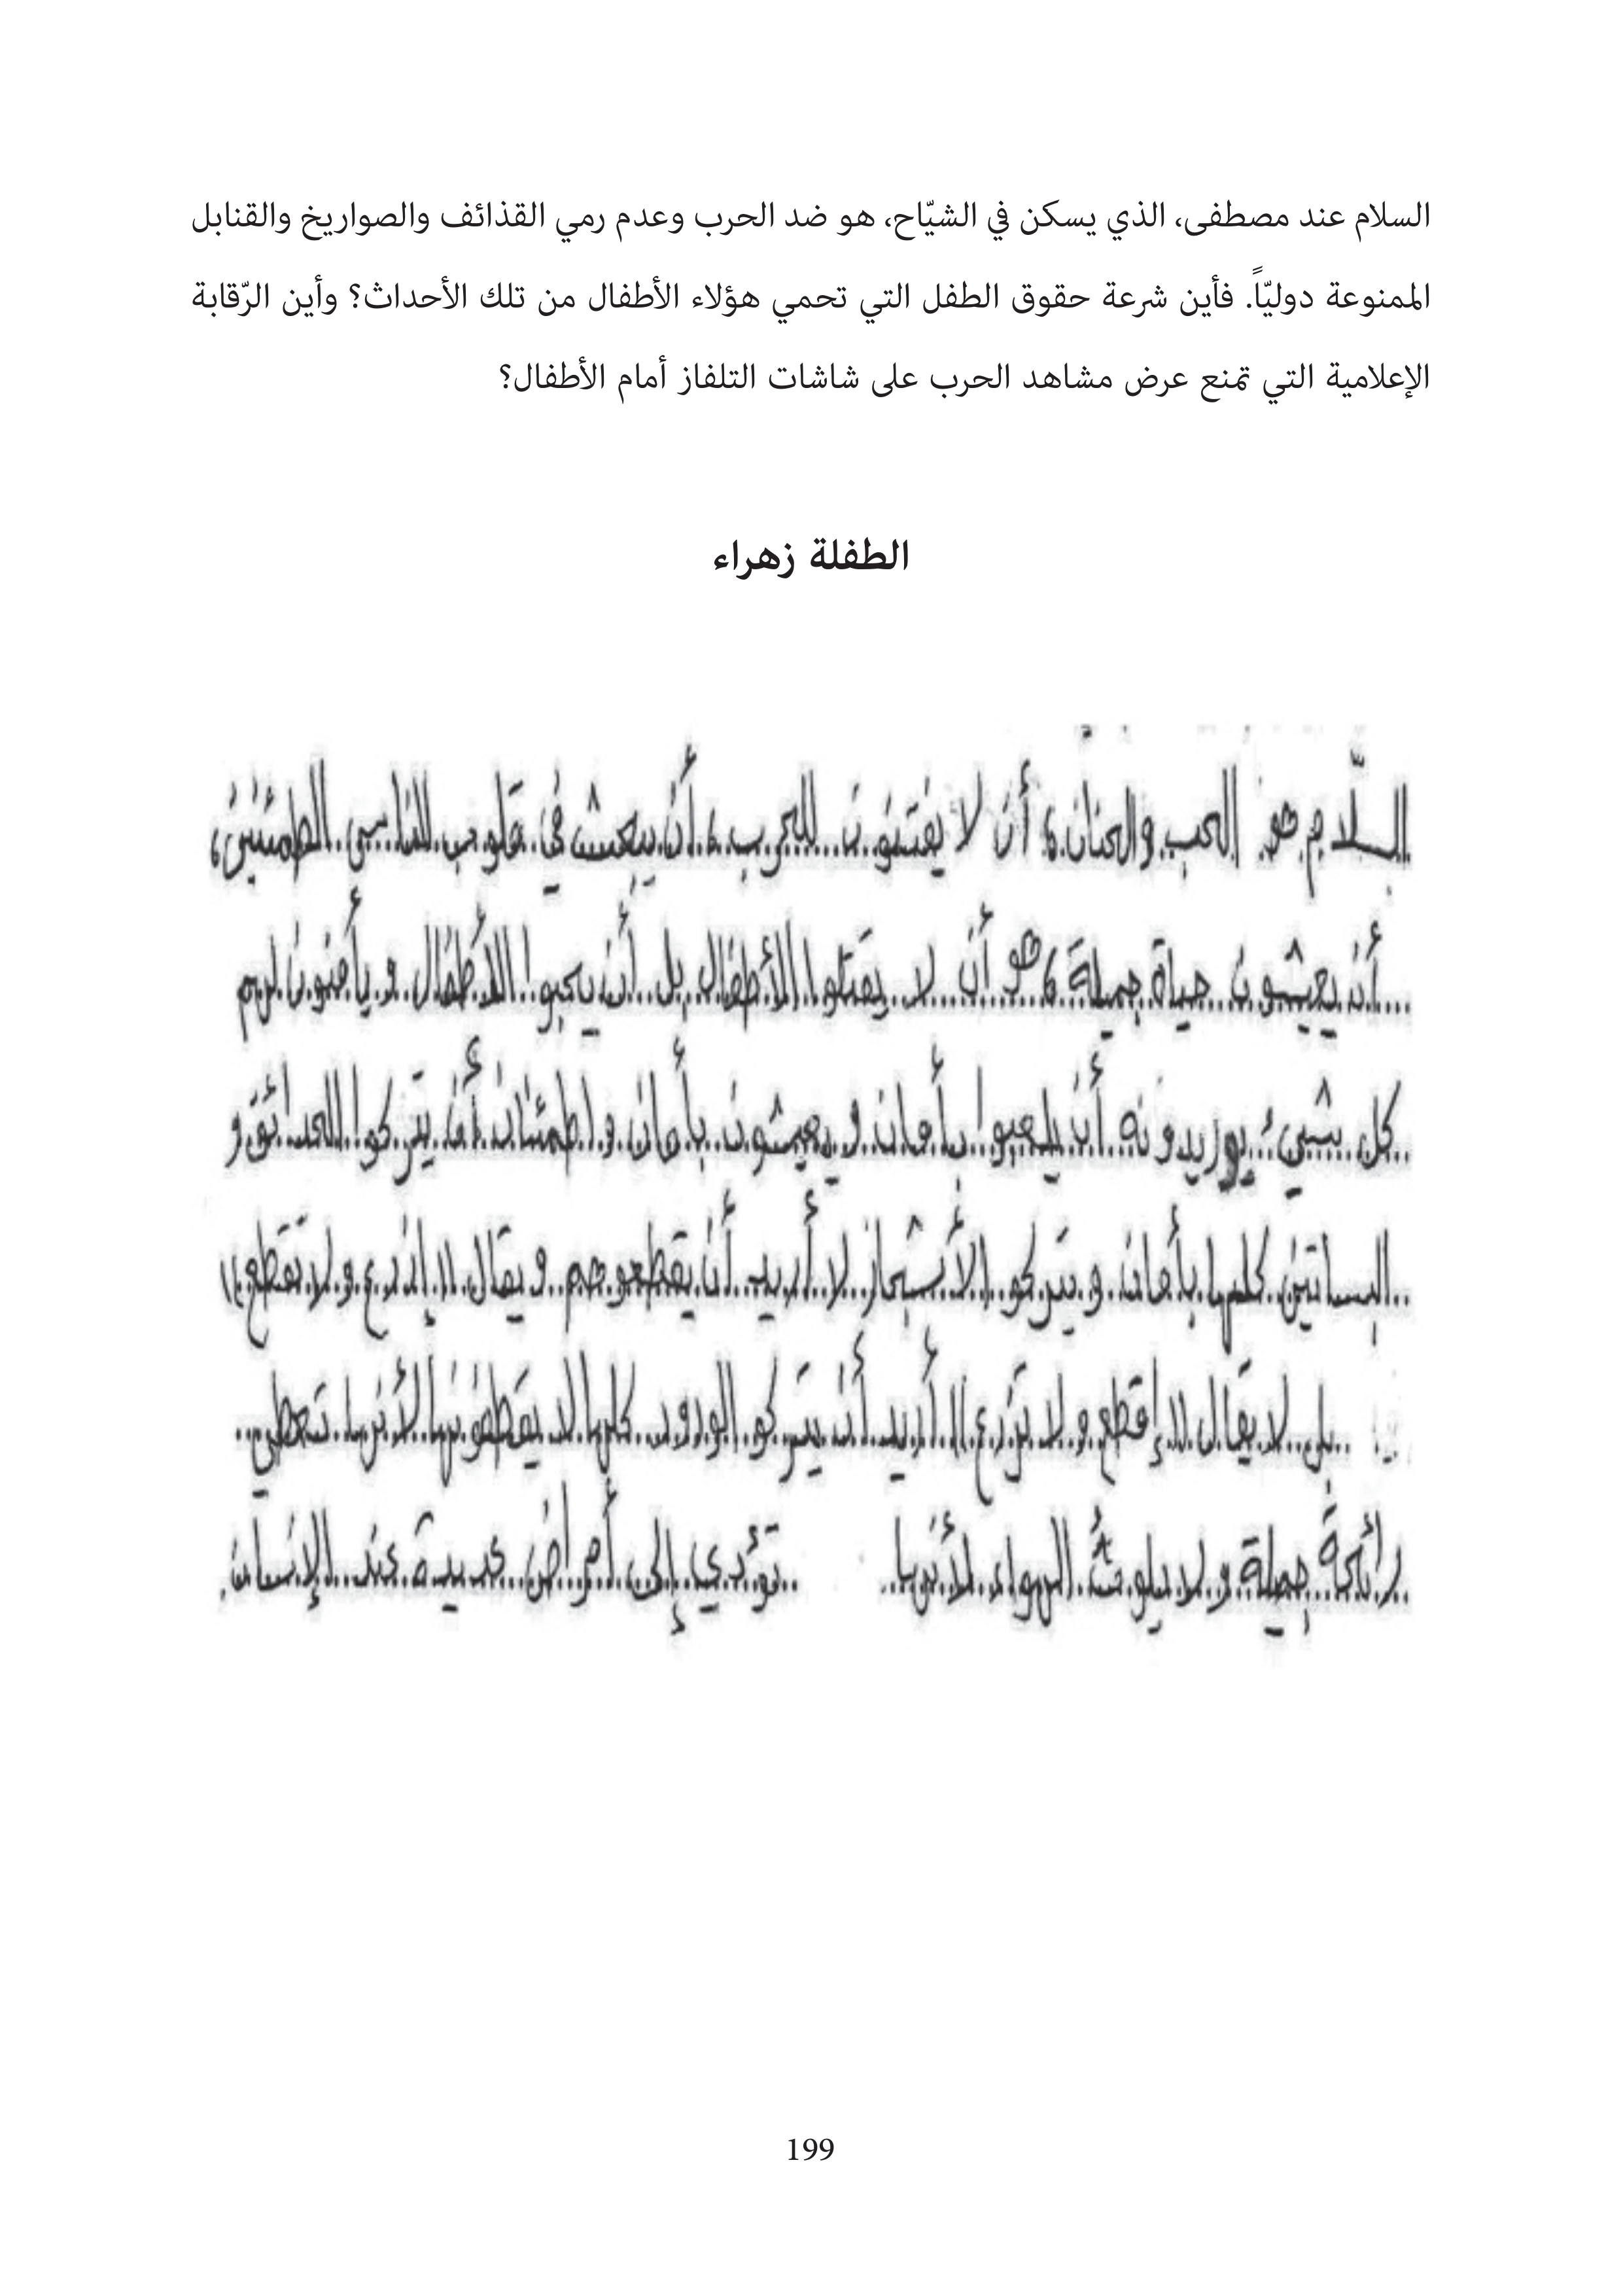 السلام عند مصطفى، الذي يسكن في الشيّاح، هو ضد الحرب وعدم رمي القذائف والصواريخ والقنابل
الممنوعة دوليّاً. فأين شرعة حقوق الطفل التي تحمي هؤلاء الأطفال من تلك الأحداث؟ وأين الرّقابة
الإعلامية التي تمنع عرض مشاهد الحرب على شاشات التلفاز أمام الأطفال؟
الطفلة زهراء
السلّام هو الحب والحنان، أن لا يفتنون للحرب، أن يبعث في قلوب الناس
أن يعيشون حياة جميلة، هو أن لا يقتلوا الأطفال بل أن يحبوا الأطفال و يأمنون لهم
كل شيىء يوريدونه أن يلعبوا بأمان و يعيشون بأمان و اطمئنان أن يتركوا الحدائق و
البساتين كلها بأمان و يتركو الأشجار لا أريد أن يقطعوهم و يقال "إزرع و لا تقطع"
بل لا يقال "إقطع و لا تزرع" أريد أن يتركو الورود كلها لا يقطفونها لأنها تعطي
رائحة جميلة و لا يلوثُ الهواء لأنها تؤدي إلى أمراض عديدة عند الإنسان.
199